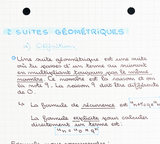 2 SUITES GÉOMÉTRIQUES
a) Définitions
Une suite géométrique est une suite
où l'on passe d'un terme au suivant
en multipliant toujours par le même
nombre. Ce nombre est la raison et on
la note q. La raison q doit être différente
de 0.
La formule de récurrence est "uₙ₊₁=q×uₙ"
La formule explicite pour calculer
directement un terme est:
"uₙ = u₀ × qⁿ"